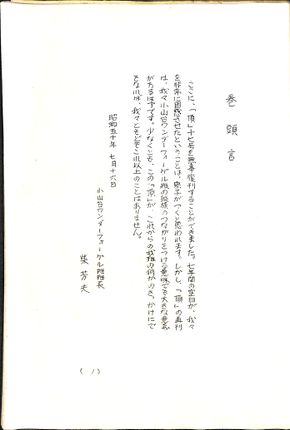 巻頭言
ここに、「頂」十七号を無事復刊することができました。七年間の空白が、我々
を非常に困惑させたということは、察しがつくと思われます。しかし、「頂」の再刊
は、我々小山台ワンダーフォーゲル班の班員のつながりをつける意味でも大きな意義
があるはずです。少なくとも、この「頂」が、これからの我班の何かのきっかけにで
もなれば、我々としてもこれ以上のことはありません。
昭和五十年 七月十六日
小山台ワンダーフォーゲル班班長
柴 芳夫
(1)